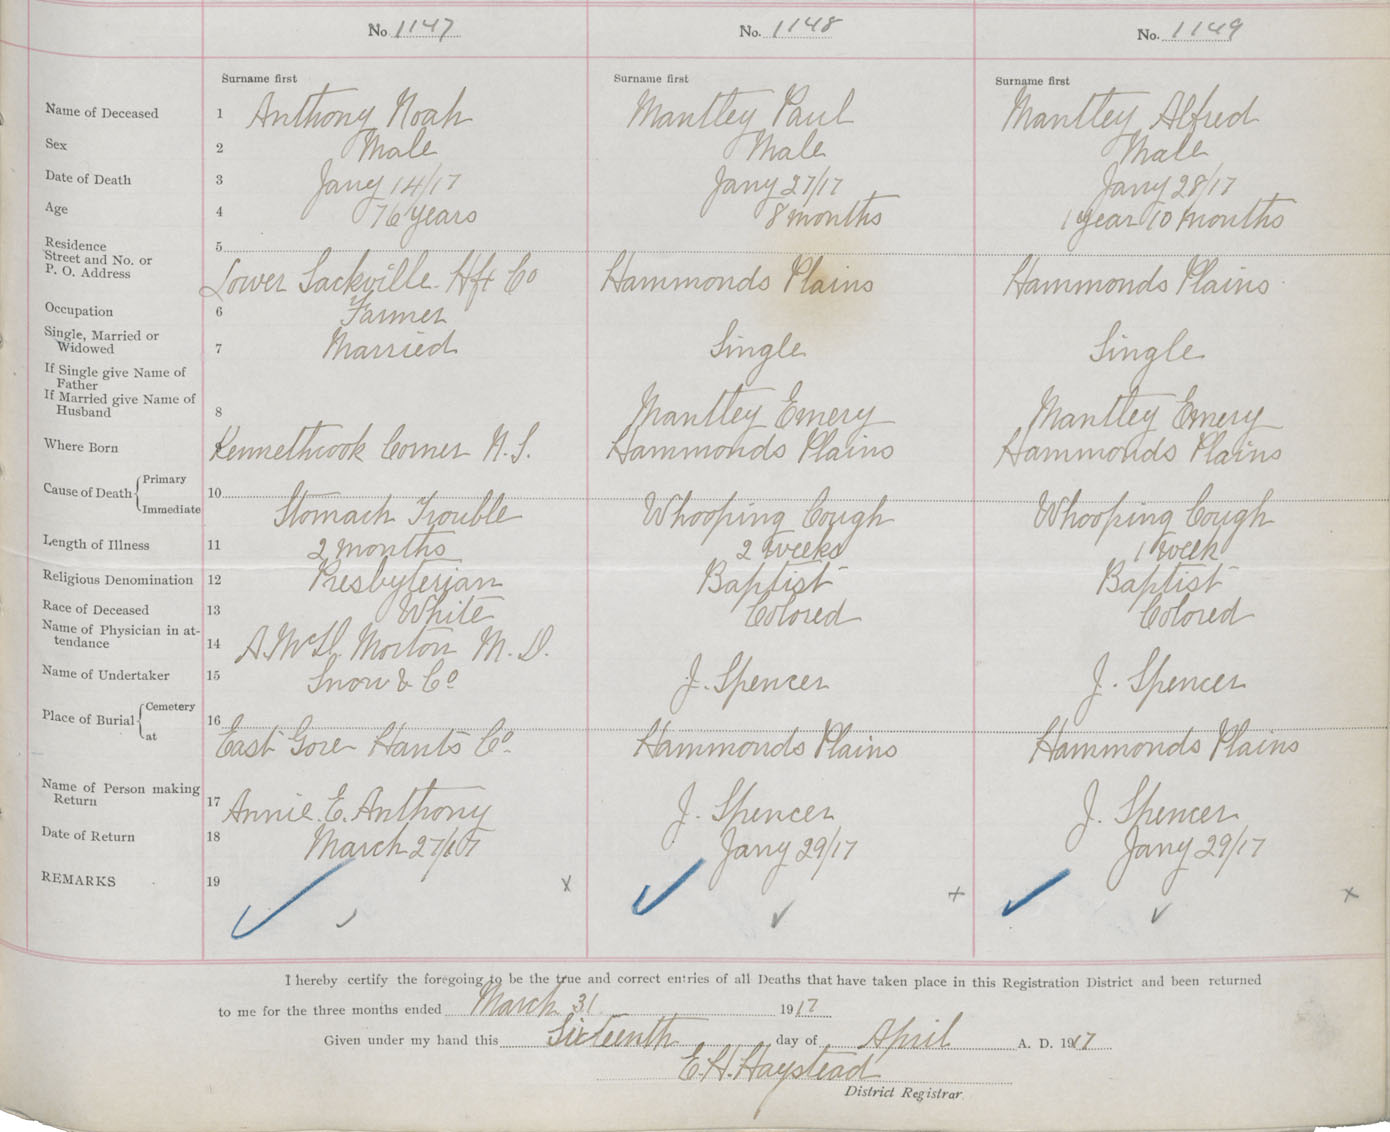 No. 1147 No. 1148 No. 1149
Surname first Surname first Surname first
Name of Deceased 1 Anthony Noah Mantley Paul Mantley Alfred
Sex 2 Male Male Male
Date of Death 3 Jany 14/17 Jany 27/17 Jany 28/17
Age 4 76 years 8 months 1 year 10 months
Residence 5
Street and No. or
P. O. Address Lower Sackville Hfx Co Hammonds Plains Hammonds Plains
Occupation 6 Farmer
Single, Married or
Widowed 7 Married Single Single
If Single give Name of
Father
If Married give Name of
Husband 8 Mantley Emery Mantley Emery
Where Born 9 Kennethcook Corner N.S. Hammonds Plains Hammonds Plains
Cause of Death { Primary 10
Immediate Stomach Trouble Whooping Cough Whooping Cough
Length of Illness 11 2 months 2 weeks 1 week
Religious Denomination 12 Presbyterian Baptist Baptist
Race of Deceased 13 White Colored Colored
Name of Physician in at-
tendance 14 A. McD. Morton M.D.
Name of Undertaker 15 Snow & Co J. Spencer J. Spencer
Place of Burial { Cemetery 16
at East Gore Hants Co. Hammonds Plains Hammonds Plains
Name of Person making
Return 17 Annie. E. Anthony J. Spencer J. Spencer
Date of Return 18 March 27/17 Jany 29/17 Jany 29/17
REMARKS 19 x + x
I hereby certify the foregoing to be the true and correct entries of all Deaths that have taken place in this Registration District and been returned
to me for the three months ended March 31 1917
Given under my hand this Sixteenth day of April A. D. 1917
E. H. Haystead
District Registrar.